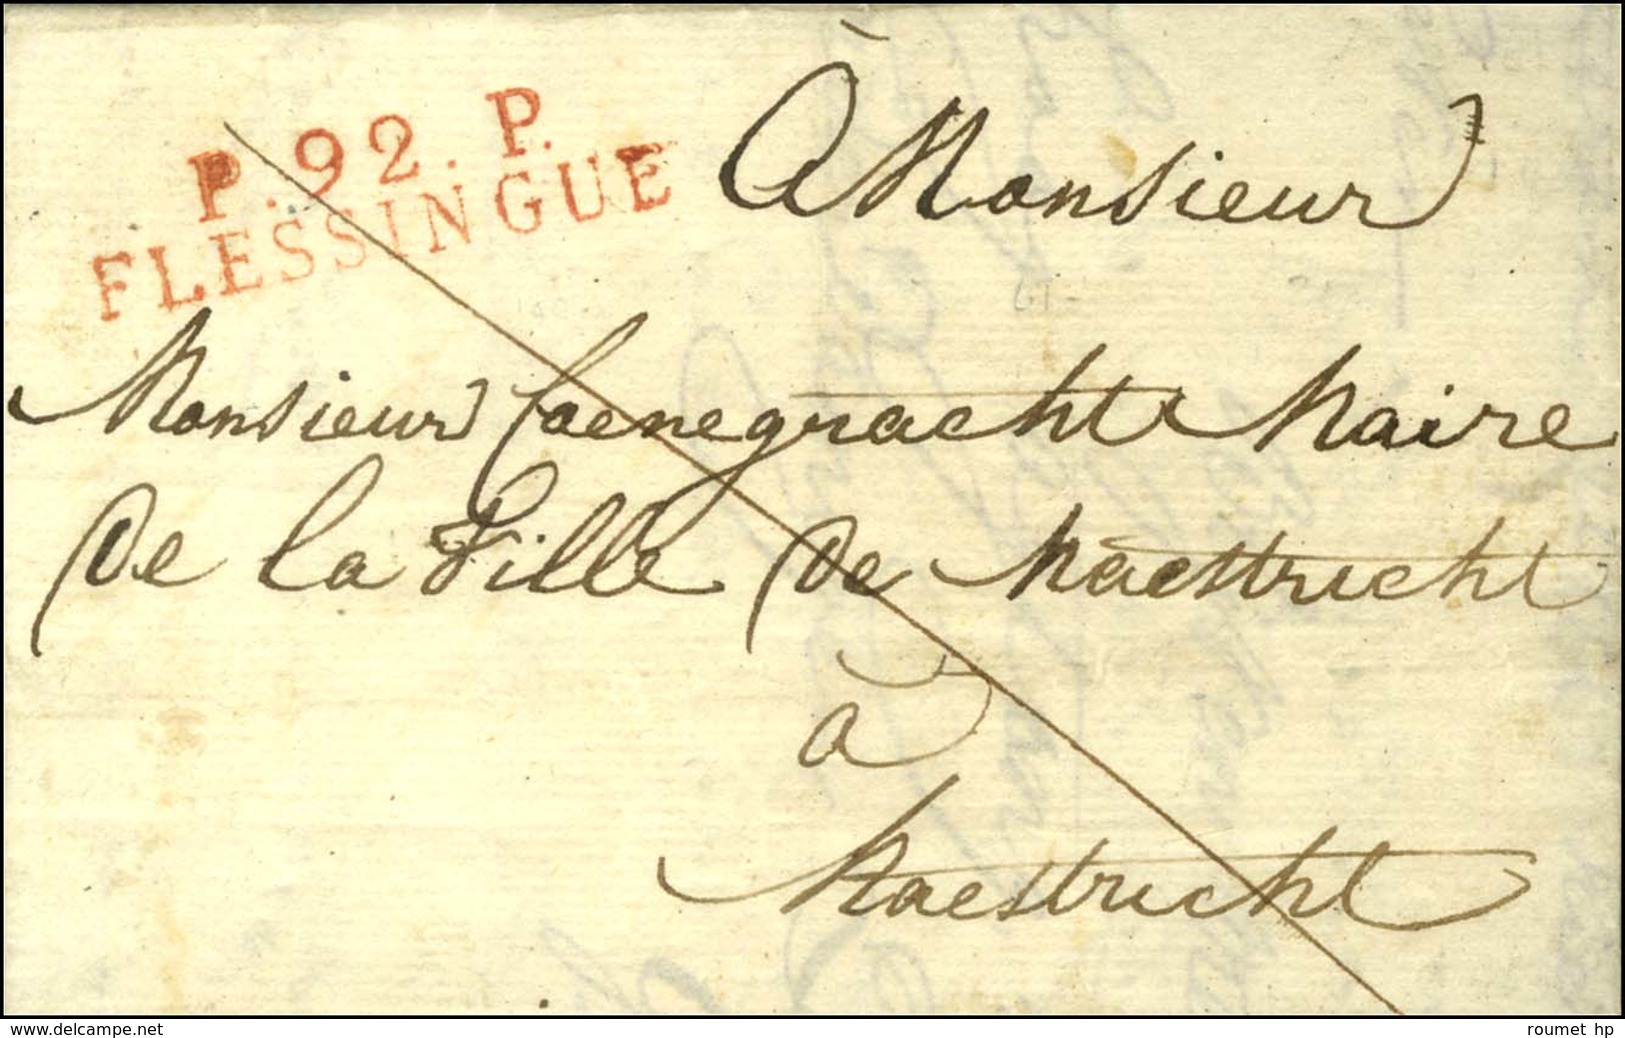 P. 92. P.
FLESSINGUE
À Monsieur
Monsieur Coenegracht Maire
De la Ville de Maestricht
à
Maestricht
www.delcampe.net
roumet hp